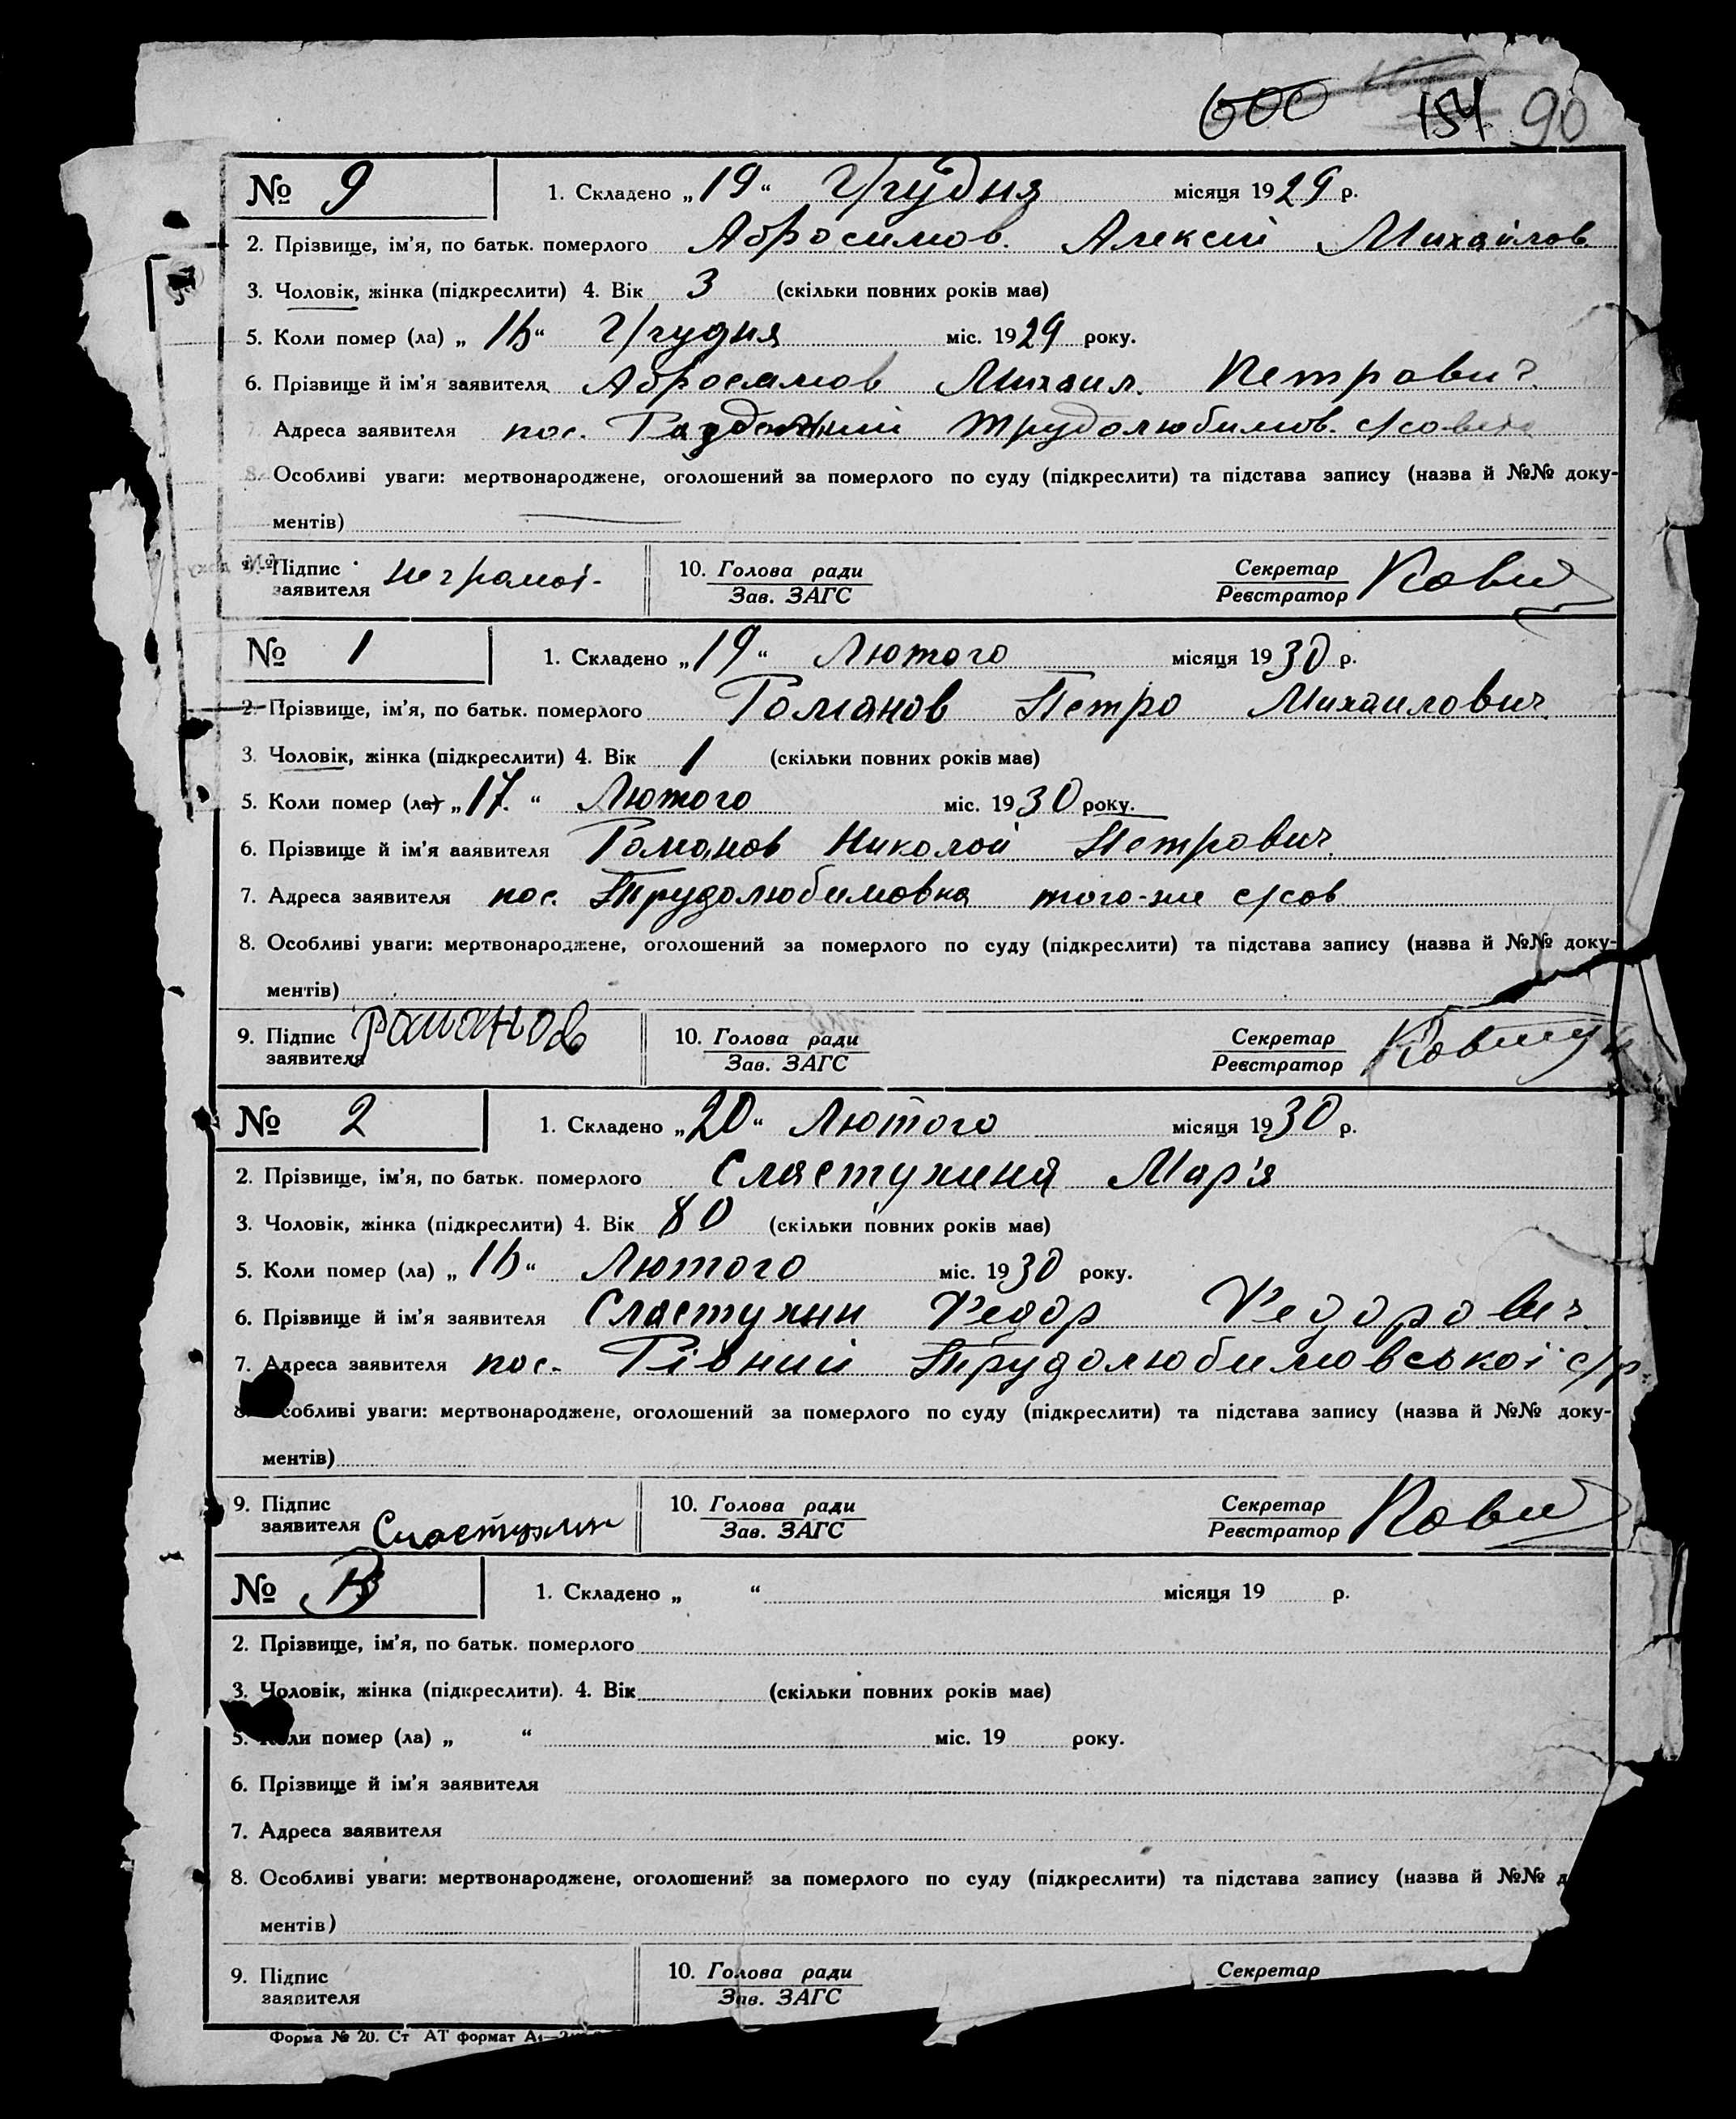 600 154 90
№ 9 1. Складено „19“ Грудня місяця 1929 р.
2. Прізвище, ім’я, по батьк. померлого Абросимов. Алексій Михайлов.
3. Чоловік, жінка (підкреслити) 4. Вік 3 (скільки повних років має)
5. Коли помер (ла) „16“ Грудня міс. 1929 року.
6. Прізвище й ім’я заявителя Абросимов Михаил. Петрович.
7. Адреса заявителя пос. Трудолюбимов. с/совета
8. Особливі уваги: мертвонароджене, оголошений за померлого по суду (підкреслити) та підстава запису (назва й №№ доку-
ментів)
9. Підпис неграмот-
заявителя
10. Голова ради Секретар
Зав. ЗАГС Реєстратор
№ 1 1. Складено „19“ Лютого місяця 1930 р.
2. Прізвище, ім’я, по батьк. померлого Романов Петро Михаилович.
3. Чоловік, жінка (підкреслити) 4. Вік 1 (скільки повних років має)
5. Коли помер (ла) „17.“ Лютого міс. 1930 року.
6. Прізвище й ім’я заявителя Романов Николой Петрович.
7. Адреса заявителя пос. Трудолюбимовка того-же с/сов
8. Особливі уваги: мертвонароджене, оголошений за померлого по суду (підкреслити) та підстава запису (назва й №№ доку-
ментів)
9. Підпис Раманов
заявителя
10. Голова ради Секретар
Зав. ЗАГС Реєстратор
№ 2 1. Складено „20“ Лютого місяця 1930 р.
2. Прізвище, ім’я, по батьк. померлого Сластухина Мар'я
3. Чоловік, жінка (підкреслити) 4. Вік 80 (скільки повних років має)
5. Коли помер (ла) „16“ Лютого міс. 1930 року.
6. Прізвище й ім’я заявителя Сластухин Федор Федорович.
7. Адреса заявителя пос. Рівний Трудолюбимовської с/р.
8. Особливі уваги: мертвонароджене, оголошений за померлого по суду (підкреслити) та підстава запису (назва й №№ доку-
ментів)
9. Підпис
заявителя Сластухин
10. Голова ради Секретар
Зав. ЗАГС Реєстратор
№ 1. Складено „ “ місяця 19 р.
2. Прізвище, ім’я, по батьк. померлого
3. Чоловік, жінка (підкреслити). 4. Вік (скільки повних років має)
5. Коли помер (ла) „ “ міс. 19 року.
6. Прізвище й ім’я заявителя
7. Адреса заявителя
8. Особливі уваги: мертвонароджене, оголошений за померлого по суду (підкреслити) та підстава запису (назва й №№ д
ментів)
9. Підпис
заявителя
10. Голова ради Секретар
Зав. ЗАГС
Форма № 20. Ст АТ формат А4